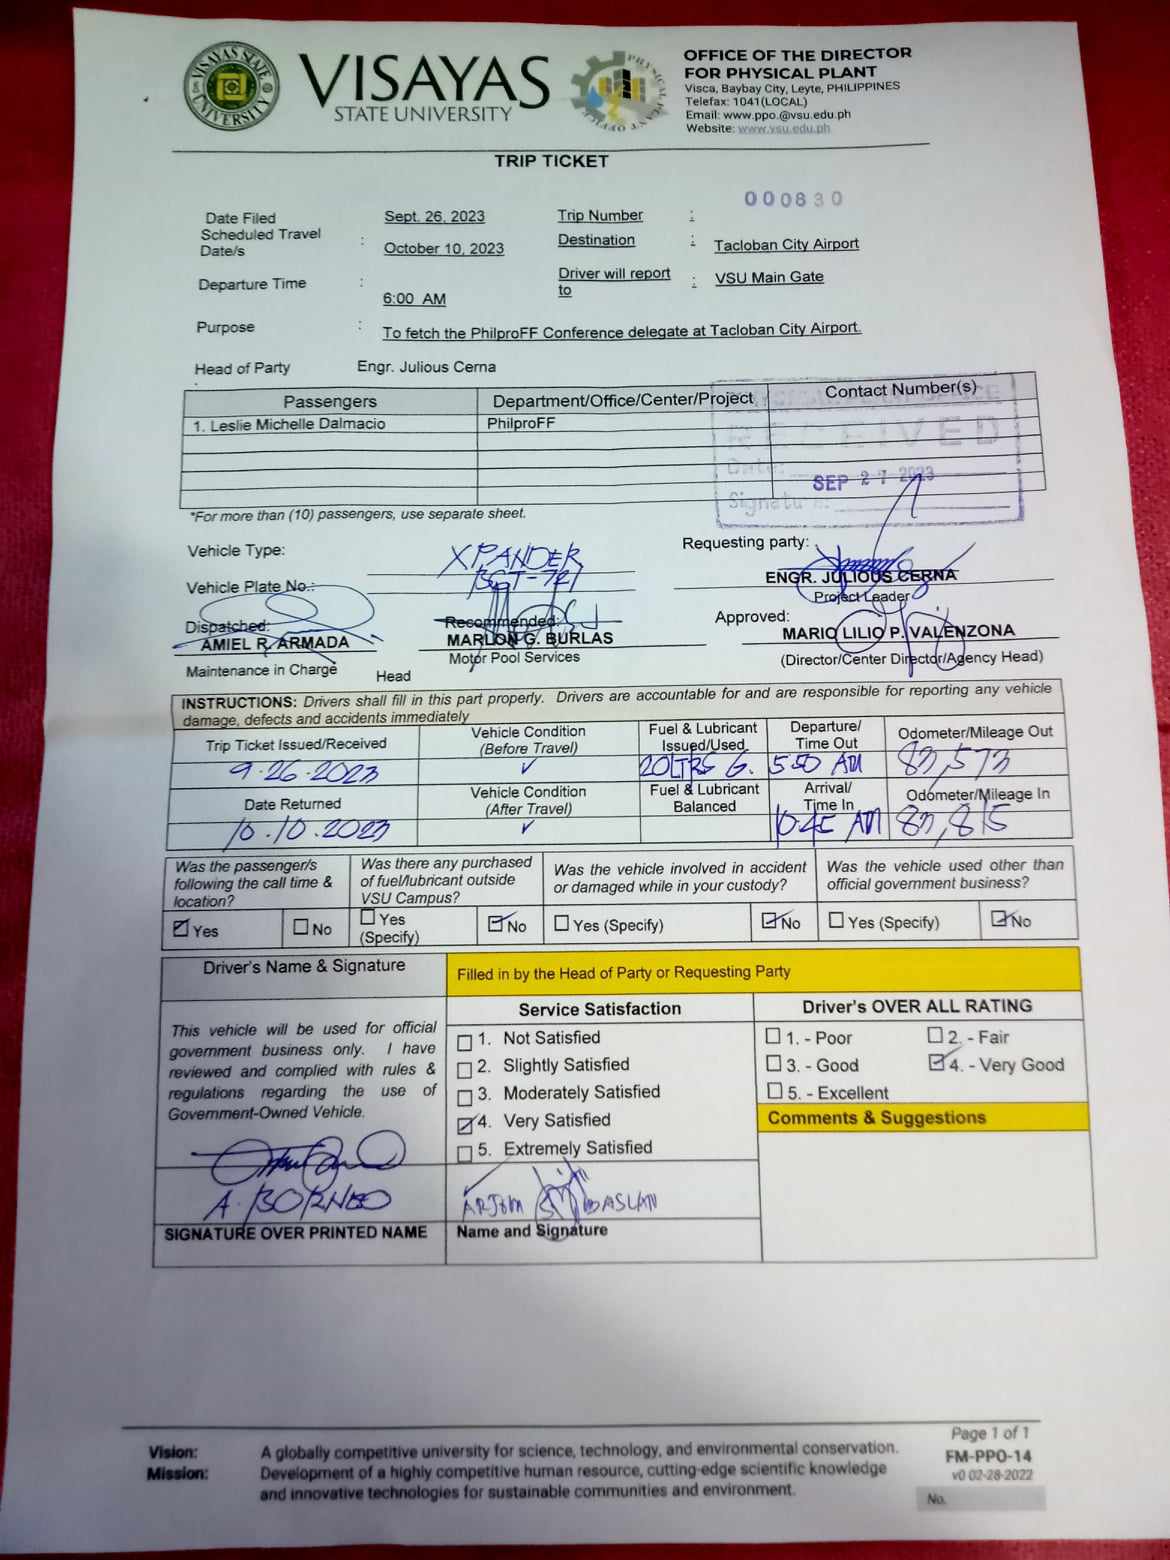 VISAYAS STATE UNIVERSITY
VISAYAS
STATE UNIVERSITY
PHYSICAL PLANT OFFICE
OFFICE OF THE DIRECTOR
FOR PHYSICAL PLANT
Visca, Baybay City, Leyte, PHILIPPINES
Telefax: 1041(LOCAL)
Email: www.ppo.@vsu.edu.ph
Website: www.vsu.edu.ph
TRIP TICKET
000830
Date Filed Sept. 26, 2023 Trip Number :
Scheduled Travel Date/s : October 10, 2023 Destination : Tacloban City Airport
Departure Time : 6:00 AM Driver will report to : VSU Main Gate
Purpose : To fetch the PhilproFF Conference delegate at Tacloban City Airport.
Head of Party Engr. Julious Cerna
Passengers Department/Office/Center/Project Contact Number(s)
1. Leslie Michelle Dalmacio PhilproFF
RECEIVED
Date:
SEP 27 2023
Signature:
*For more than (10) passengers, use separate sheet.
Vehicle Type: XPANDER Requesting party:
Vehicle Plate No.: ENGR. JULIOUS CERNA
Project Leader
Dispatched: Recommended: Approved:
AMIEL R. ARMADA MARLON G. BURLAS MARIO LILIO P. VALENZONA
Maintenance in Charge Head Motor Pool Services (Director/Center Director/Agency Head)
INSTRUCTIONS: Drivers shall fill in this part properly. Drivers are accountable for and are responsible for reporting any vehicle
damage, defects and accidents immediately
Trip Ticket Issued/Received Vehicle Condition (Before Travel) Fuel & Lubricant Issued/Used Departure/ Time Out Odometer/Mileage Out
9-26-2023 ✓ 20LTRS G. 5:50 AM 83,573
Date Returned Vehicle Condition (After Travel) Fuel & Lubricant Balanced Arrival/ Time In Odometer/Mileage In
10.10.2023 ✓ 10:45 AM 83,815
Was the passenger/s following the call time & location? Was there any purchased of fuel/lubricant outside VSU Campus? Was the vehicle involved in accident or damaged while in your custody? Was the vehicle used other than official government business?
☑ Yes ☐ No ☐ Yes (Specify) ☑ No ☐ Yes (Specify) ☑ No ☐ Yes (Specify) ☑ No
Driver's Name & Signature Filled in by the Head of Party or Requesting Party
Service Satisfaction Driver's OVER ALL RATING
This vehicle will be used for official
government business only. I have
reviewed and complied with rules &
regulations regarding the use of
Government-Owned Vehicle.
☐ 1. Not Satisfied
☐ 2. Slightly Satisfied
☐ 3. Moderately Satisfied
☑ 4. Very Satisfied
☐ 5. Extremely Satisfied
☐ 1. - Poor ☐ 2. - Fair
☐ 3. - Good ☑ 4. - Very Good
☐ 5. - Excellent
Comments & Suggestions
A. BORNEO
SIGNATURE OVER PRINTED NAME
ARJOM BASLAN
Name and Signature
Page 1 of 1
Vision: A globally competitive university for science, technology, and environmental conservation.
FM-PPO-14
Mission: Development of a highly competitive human resource, cutting-edge scientific knowledge
v0 02-28-2022
and innovative technologies for sustainable communities and environment.
No.